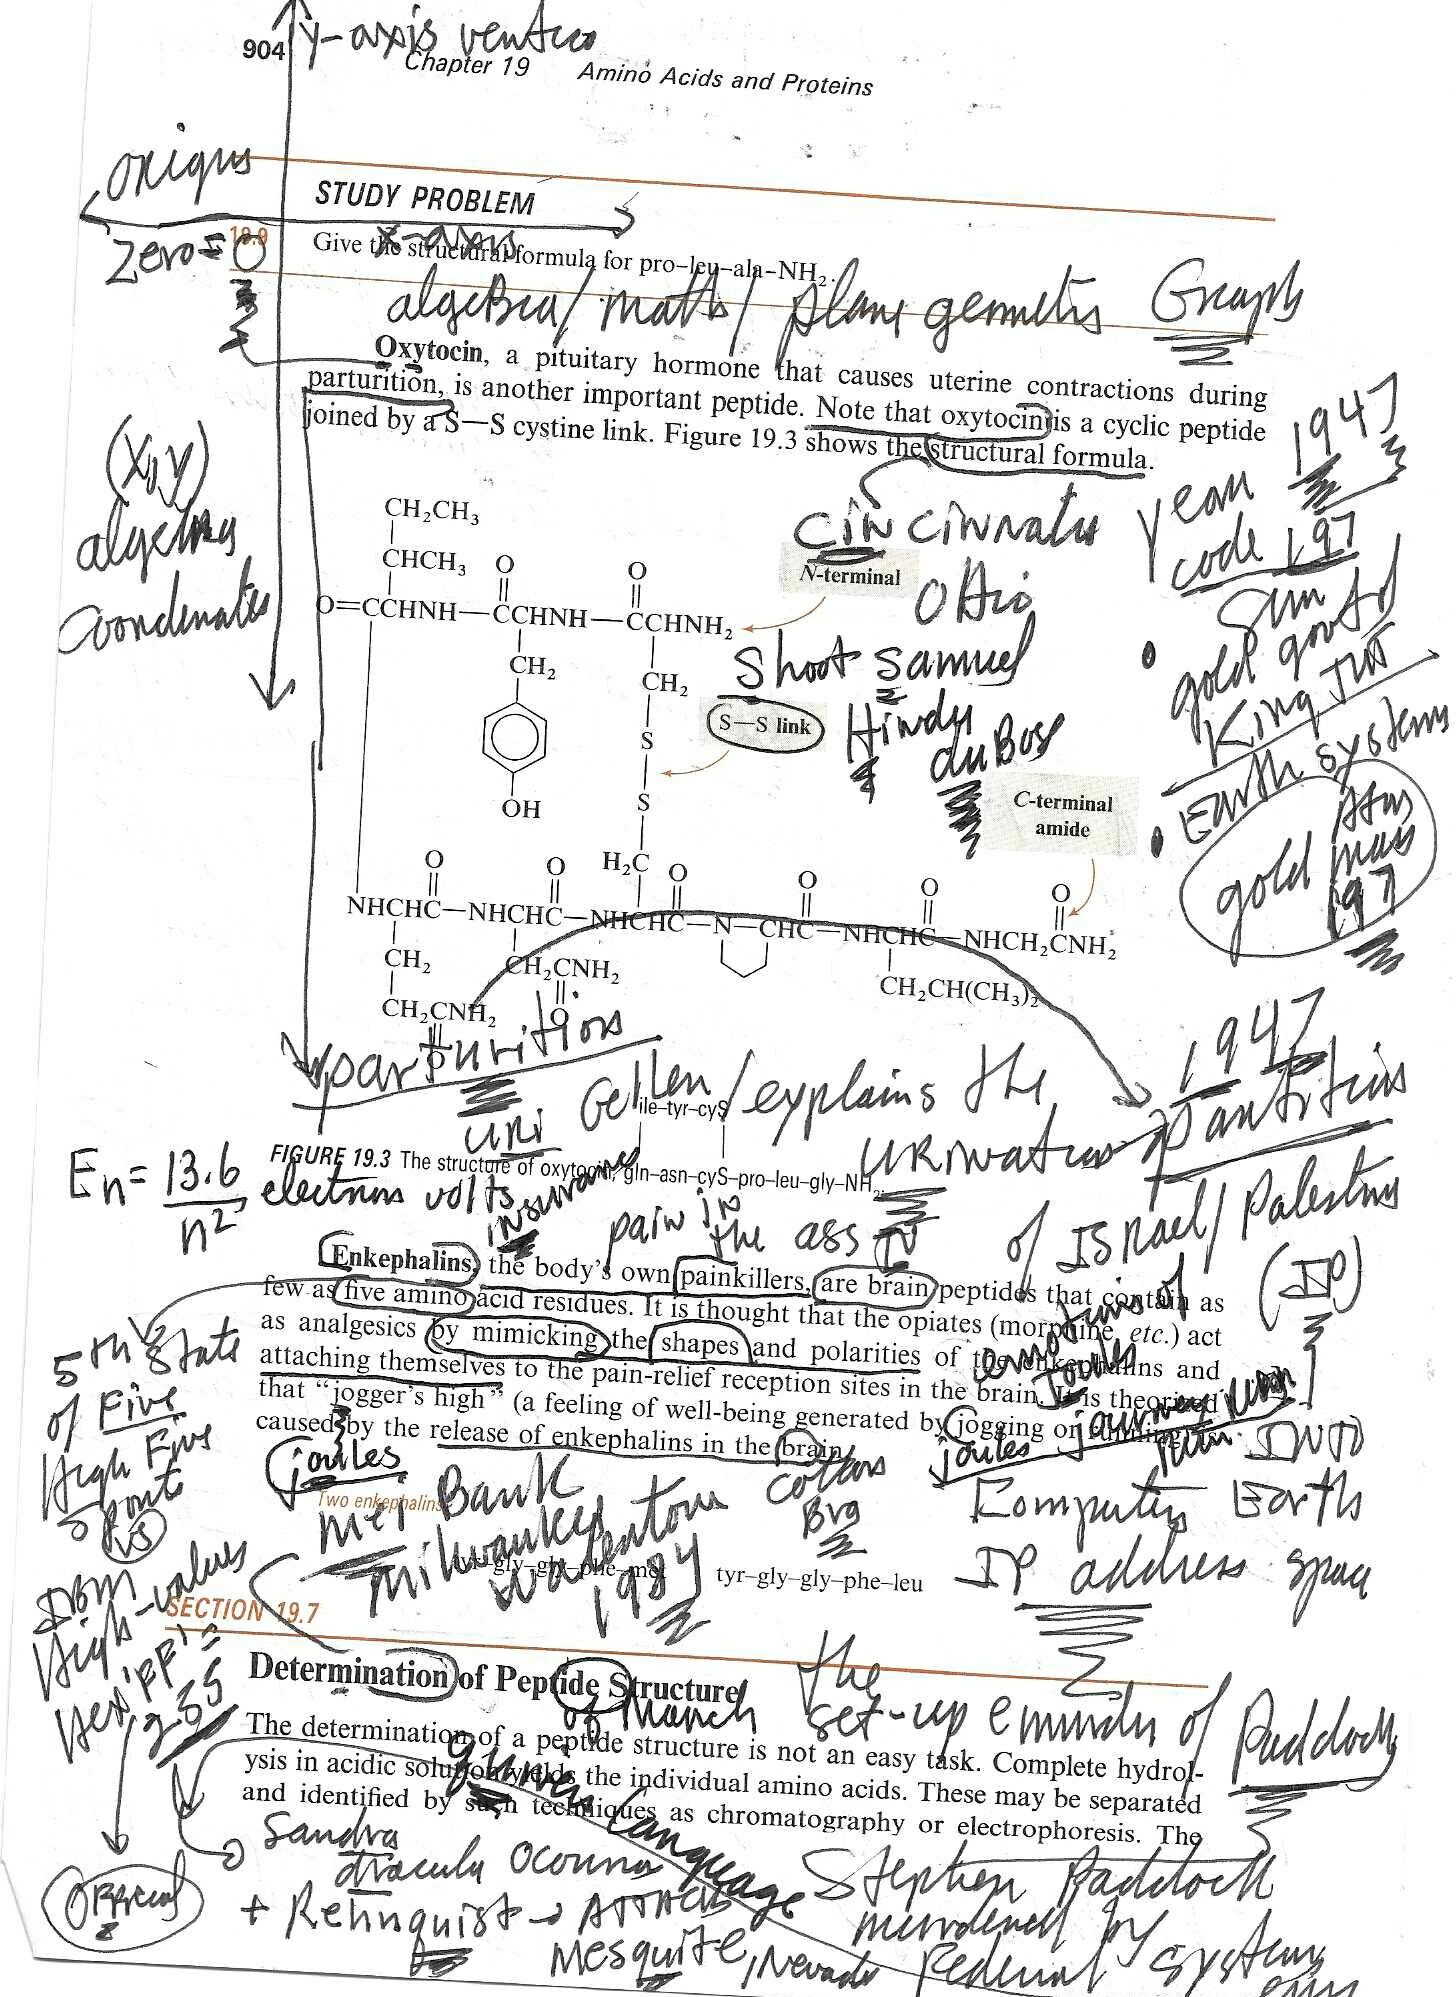 y-axis
904
Chapter 19 Amino Acids and Proteins
STUDY PROBLEM
x-axis
19.9
Zero = 0
Give the structural formula for pro–leu–ala–NH₂.
algebra / math / plane Graph
Oxytocin, a pituitary hormone that causes uterine contractions during
parturition, is another important peptide. Note that oxytocin is a cyclic peptide
joined by a S—S cystine link. Figure 19.3 shows the structural formula.
1947
year
code 197
(x,y)
algebra
CH₂CH₃
CHCH₃ O O
O=CCHNH—CCHNH—CCHNH₂
N-terminal
Cincinnati
Ohio
Sun
gold govt of
King Tut
Earth systems
CH₂ CH₂
Shoot Samuel
Hindu duBose
S—S link
S
S
OH
C-terminal
amide
gold mass
197
H₂C
O O O O O O
NHCHC—NHCHC—NHCHC—N—CHC—NHCHC—NHCH₂CNH₂
CH₂ CH₂CNH₂ CH₂CH(CH₃)₂
O
CH₂CNH₂
O
parturition
1947
Uri Gellen / explains the
ile–tyr–cyS
of Israel / Palestine
FIGURE 19.3 The structure of oxytocin, gln–asn–cyS–pro–leu–gly–NH₂.
Eₙ = 13.6 / n² electron volts
insurance
pain in
the ass
Enkephalins, the body's own painkillers, are brain peptides that contain as
few as five amino acid residues. It is thought that the opiates (morphine, etc.) act
as analgesics by mimicking the shapes and polarities of the enkephalins and
attaching themselves to the pain-relief reception sites in the brain. It is theorized
that “jogger's high” (a feeling of well-being generated by jogging or running) is
caused by the release of enkephalins in the brain.
emotions of
Joules
5th State
of Five
High Five
vs
joules
joules journey
into
Computer Earth
IP address space
Two enkephalins:
met Bank
Milwaukee
1984
tyr–gly–gly–phe–met tyr–gly–gly–phe–leu
IBM
High-values
Hex 'FF' =
255
SECTION 19.7
Determination of Peptide Structure
of March
the
set-up
of Paddock
The determination of a peptide structure is not an easy task. Complete hydrol-
ysis in acidic solution yields the individual amino acids. These may be separated
and identified by such techniques as chromatography or electrophoresis. The
Language
Sandra
dracula
Official
+ Relinquist →
Mesquite, Nevada
Stephen Paddock
murdered by
Federal systems